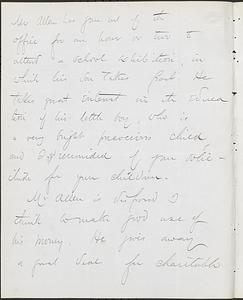 Mr Allen has gone out of the
office for an hour or two to
attend a School Exhibition, in
which his son takes part. He
takes great interest in the educa
tion of his little boy, who is
a very bright precocious child
and I reminded of your
for your children.
Mr Allen is disposed I
think to make good use of
his money. He gives away
a great deal for charitable